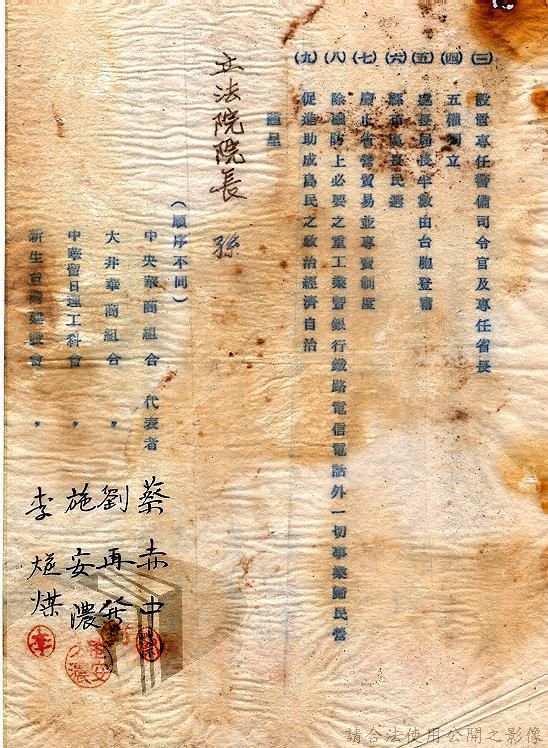 (三) 設置專任警備司令官及專任省長
(四) 五權獨立
(五) 處長局長半數由台胞登審
(六) 縣市區長民選
(七) 廢止省營貿易並專賣制度
(八) 除國防上必要之重工業暨銀行鐵路電信電話外一切事業歸民營
(九) 促進助成島民之政治經濟自治
謹呈
立法院院長 孫
(順序不同)
中央華商組合 代表者 蔡赤中
大井華商組合 〃 劉再發
中華留日理工科會 〃 施安濃
新生台灣建設會 〃 李 煤
請合法使用公開之影像